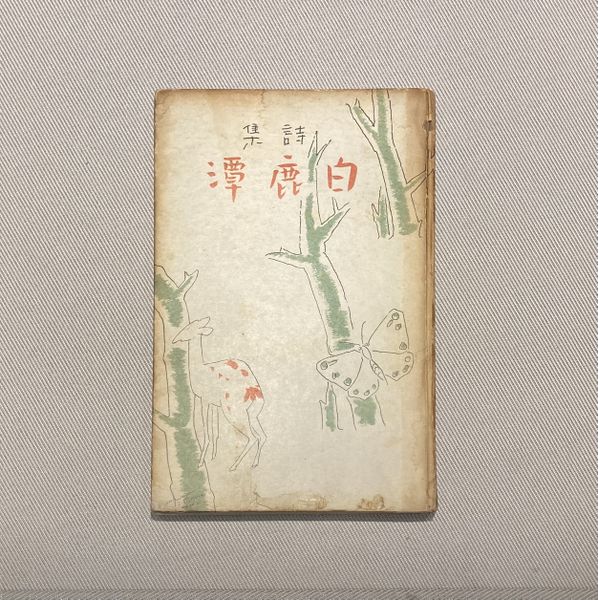 詩集
白鹿潭